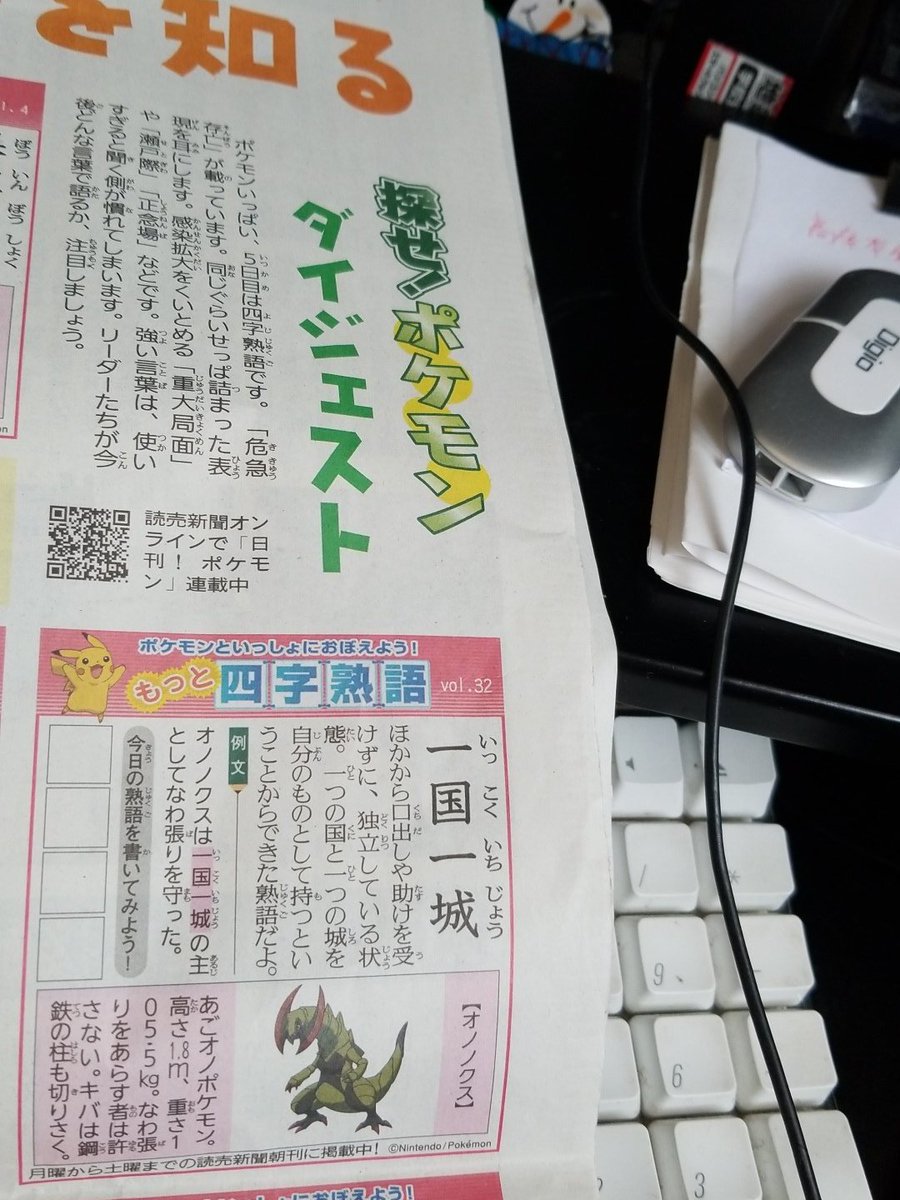 を知る
探せ!ポケモン
ダイジェスト
ポケモンいっぱい、5日目は四字熟語です。「危急
存亡」が載っています。同じぐらいせっぱ詰まった表
現を耳にします。感染拡大をくいとめる「重大局面」
や「瀬戸際」「正念場」などです。強い言葉は、使い
すぎると聞く側が慣れてしまいます。リーダーたちが今
後どんな言葉で語るか、注目しましょう。
読売新聞オン
ラインで「日
刊! ポケモ
ン」連載中
ポケモンといっしょにおぼえよう!
もっと四字熟語 vol.32
いっ こく いち じょう
一国一城
ほかから口出しや助けを受
けずに、独立している状
態。一つの国と一つの城を
自分のものとして持つとい
うことからできた熟語だよ。
例文
オノノクスは一国一城の主
としてなわ張りを守った。
今日の熟語を書いてみよう!
【オノノクス】
あごオノポケモン。
高さ1.8m、重さ1
05.5kg。なわ張
りをあらす者は許
さない。キバは鋼
鉄の柱も切りさく。
©Nintendo/Pokémon
月曜から土曜までの読売新聞朝刊に掲載中!
ぼう いん ぼう しょく
Digio
/
*
9
6
3